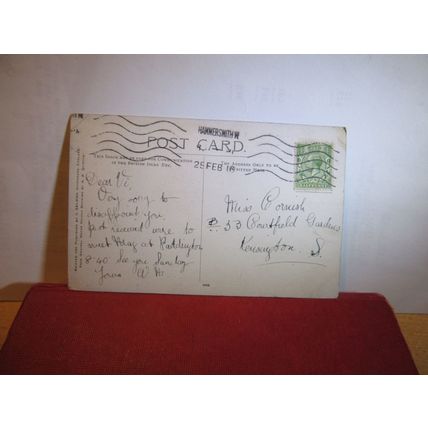 HAMMERSMITH W
POST CARD.
25 FEB 18
THIS SPACE MAY BE USED FOR COMMUNICATION
IN THE BRITISH ISLES ETC.
THE ADDRESS ONLY TO BE
WRITTEN HERE
Dear Vi,
Very sorry to
disappoint you,
just received wire to
meet at Paddington
8-40 See you Sunday
Yours
Miss Cornish
53 Courtfield Gardens
Kensington. S.